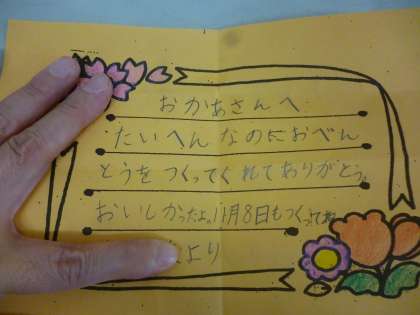 おかあさんへ
たいへんなのにおべん
とうをつくってくれてありがとう。
おいしかったよ。11月8日もつくってね
より